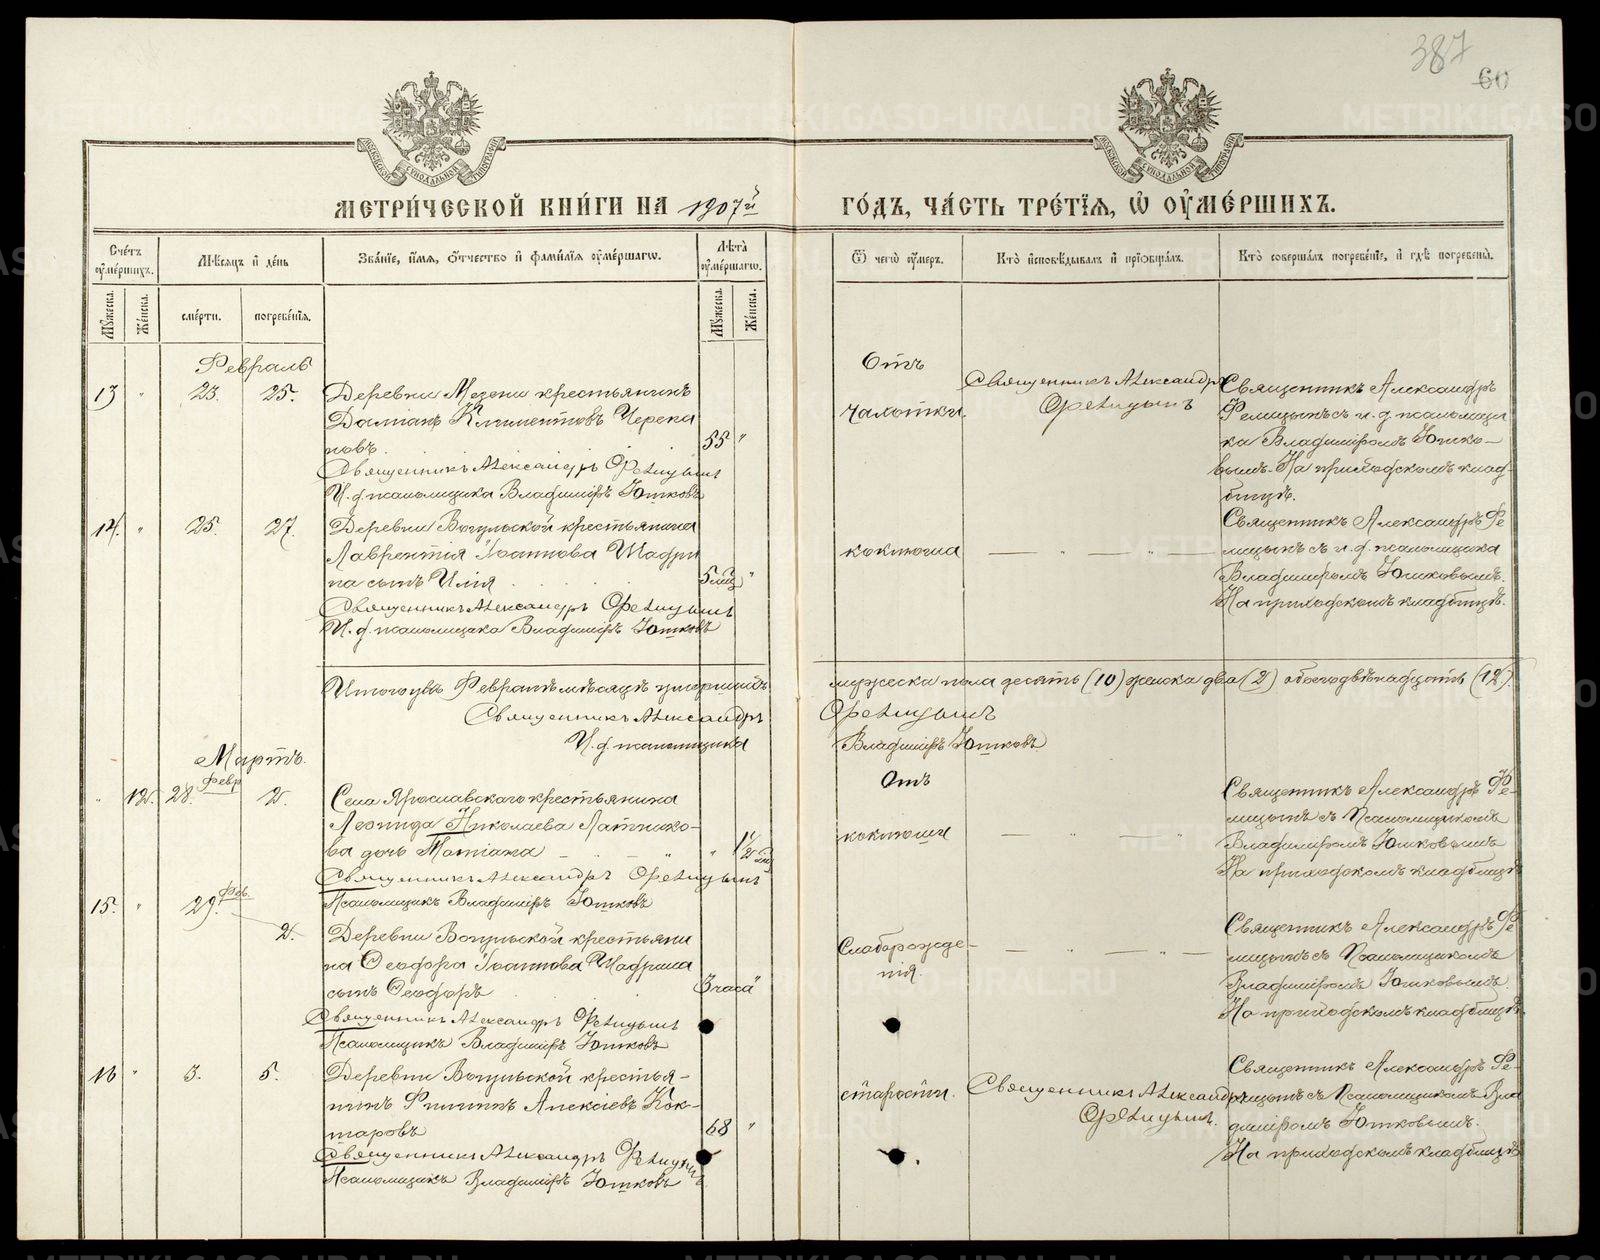 387
60
МЕТРИ́ЧЕСКОЙ КНИ́ГИ НА 1907й ГО́ДЪ, ЧА́СТЬ ТРЕ́ТІѦ, Ѡ ОУМЕ́РШИХЪ.
Сче́тъ оумершихъ.
Мѣсяцъ и день
Зва́ніе, и́мя, о́тчество и фами́лія оуме́ршагѡ.
Лѣта оуме́ршагѡ.
Ѿ чегѡ оумеръ.
Кто̀ исповѣдывалъ и пріобщалъ.
Кто̀ соверша́лъ погребе́ніе, и гдѣ погребены̀.
Му́жеска.
Же́нска.
сме́рти.
погребе́нія.
Му́жеска.
Же́нска.
Февраль
13 " 23. 25. Деревни Мезени крестьянинъ
Далматъ Климентовъ Черепа
новъ. 55 "
Священникъ Александръ Фелицынъ
И. д. псаломщика Владиміръ Юшковъ
Отъ
чахотки.
Священникъ Александръ
Фелицынъ
Священникъ Александръ
Фелицынъ съ и. д. псаломщи
ка Владиміромъ Юшко–
вымъ. На приходскомъ клад
бищѣ.
14. " 25. 27. Деревни Вогульской крестьянина
Лаврентія Іоаннова Шадри
на сынъ Илія 5 мѣс "
Священникъ Александръ Фелицынъ
И. д. псаломщика Владиміръ Юшковъ
коклюша — " — " —
Священникъ Александръ Фе
лицынъ съ и. д. псаломщика
Владиміромъ Юшковымъ.
На приходскомъ кладбищѣ.
Итого въ Февралѣ мѣсяцѣ умершихъ мужеска пола десять (10) женска два (2) обоего двѣнадцать (12).
Священникъ Александръ Фелицынъ
И. д. псаломщика Владиміръ Юшковъ
Мартъ.
" 12. 28. Февр 2. Села Ярославскаго крестьянина
Леонида Николаева Латнико–
ва дочь Татіана — " — " " 1½
Священникъ Александръ Фелицынъ
Псаломщикъ Владиміръ Юшковъ
Отъ
коклюши — " — "
Священникъ Александръ Фе–
лицынъ съ Псаломщикомъ
Владиміромъ Юшковымъ
На приходскомъ кладбищѣ
15. " 29. Фев. 2. Деревни Вогульской крестьяни
на Ѳеодора Іоаннова Шадрина
сынъ Ѳеодоръ 3 часа "
Священникъ Александръ Фелицынъ
Псаломщикъ Владиміръ Юшковъ
Слаборожде–
нія. — " — " —
Священникъ Александръ Фе
лицынъ съ Псаломщикомъ
Владиміромъ Юшковымъ.
На приходскомъ кладбищѣ.
16 " 3. 5. Деревни Вогульской крестья–
нинъ Филиппъ Алексіевъ Кок–
шаровъ 68 "
Священникъ Александръ Фелицынъ
Псаломщикъ Владиміръ Юшковъ
старости.
Священникъ Александръ
Фелицынъ.
Священникъ Александръ Фе–
лицынъ съ Псаломщикомъ Вла
диміромъ Юшковымъ.
На приходскомъ кладбищѣ
METRIKI.GASO-URAL.RU